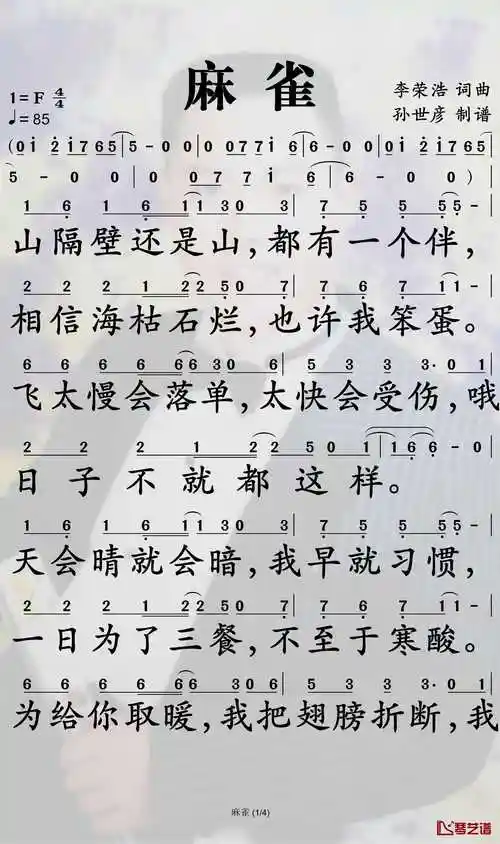 麻雀
1=F 4/4
♩=85
李荣浩 词曲
孙世彦 制谱
(0i 2i765|5-00|077i6|6-00|0i2i765|
5-00|077i6|6-00)|
1 6 1 6 1 1 3 0 3|7 5 5 5 5-|
山隔壁还是山,都有一个伴,
2 2 2 1 2 2 5 0 7|7 6 6 7 1-0|
相信海枯石烂,也许我笨蛋。
6 6 6 6 6 6 3 0 6|5 3 3 3·0 1|
飞太慢会落单,太快会受伤,哦
2 2 2 1 2 2 5 0 1|1 6 6-0|
日子不就都这样。
1 6 1 6 1 1 3 0 3|7 5 5 5 5-|
天会晴就会暗,我早就习惯,
2 2 2 1 2 2 5 0 7|7 6 6 7 1-0|
一日为了三餐,不至于寒酸。
6 6 6 6 6 6 3 0 6|5 3 3 3·0 1|
为给你取暖,我把翅膀折断,我
麻雀 (1/4)
琴艺谱